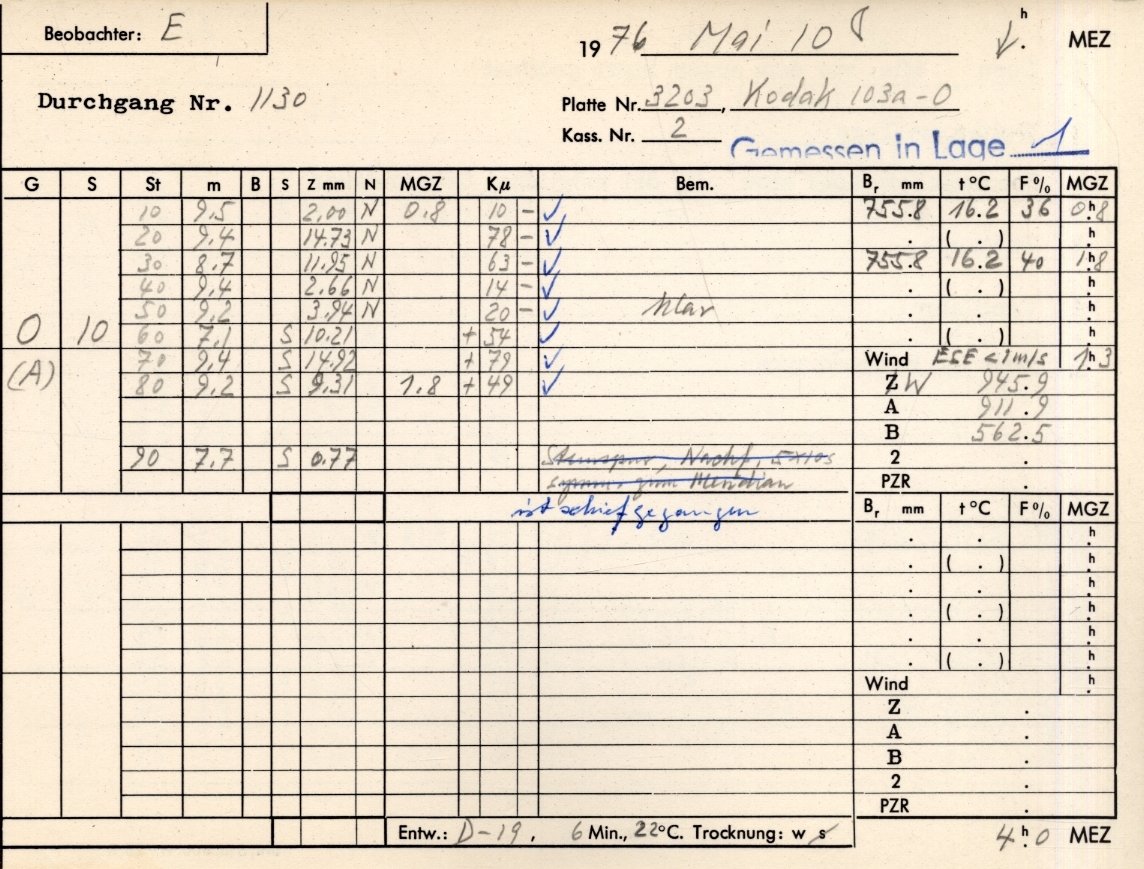 Beobachter: E
1976 Mai 10 h . MEZ
Durchgang Nr. 1130
Platte Nr. 3203, Kodak 103a-O
Kass. Nr. 2
Gemessen in Lage 1
G S St m B S Z mm N MGZ Kμ Bem. Br mm t °C F % MGZ
10 9.5 2.00 N 0.8 10 - ✓ 755.8 16.2 36 0h.8
20 9.4 14.73 N 78 - ✓ . ( . ) h.
30 8.7 11.95 N 63 - ✓ 755.8 16.2 40 1h.8
40 9.4 2.66 N 14 - ✓ . ( . ) h.
50 9.2 3.94 N 20 - ✓ klar . . h.
O 10 60 7.1 S 10.21 + 54 ✓ . ( . ) h.
(A) 70 9.4 S 14.92 + 79 ✓ Wind ESE < 1 m/s 1h.3
80 9.2 S 9.31 1.8 + 49 ✓ Z W 945.9
A 911.9
B 562.5
90 7.7 S 0.77 Sternspur, Nachf. 5x10s 2 .
symm. zum Meridian PZR .
ist schief gegangen
Br mm t °C F % MGZ
. . h.
. ( . ) h.
. . h.
. ( . ) h.
. . h.
. ( . ) h.
Wind h.
Z .
A .
B .
2 .
PZR .
Entw.: D-19, 6 Min., 22°C. Trocknung: w s 4h.0 MEZ